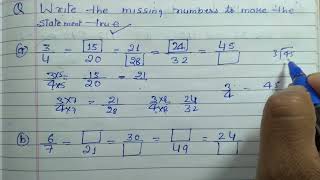 Q Write the missing numbers to make the
statement true
(a) 3/4 = [15]/20 = 21/[28] = [24]/32 = 45/[ ] 3)45
3×5/4×5 = 15/20 = 21 3/4 = 45
3×7/4×7 = 21/28 3×8/4×8 = 24/32
(b) 6/7 = [ ]/21 = 30/[ ] = [ ]/49 = 24/[ ]